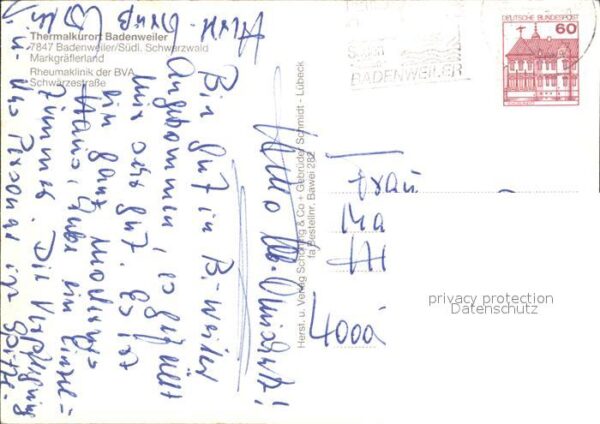 Thermalkurort Badenweiler
7847 Badenweiler/Südl. Schwarzwald
Markgräflerland
Rheumaklinik der BVA
Schwarzestraße
BADENWEILER
DEUTSCHE BUNDESPOST
60
Herst. u. Verlag Schöning & Co + Gebrüder Schmidt - Lübeck
fa Bestellnr. Bawei 282
Hallo
Bin gut in B.-weiler
angekommen, es gefällt
mir sehr gut. Es ist
ein ganz modernes
Haus, habe ein Einzel=
zimmer. Die Verpflegung
u. das Personal ist Spitze.
Gruß
Frau
Ma
4000
privacy protection
Datenschutz